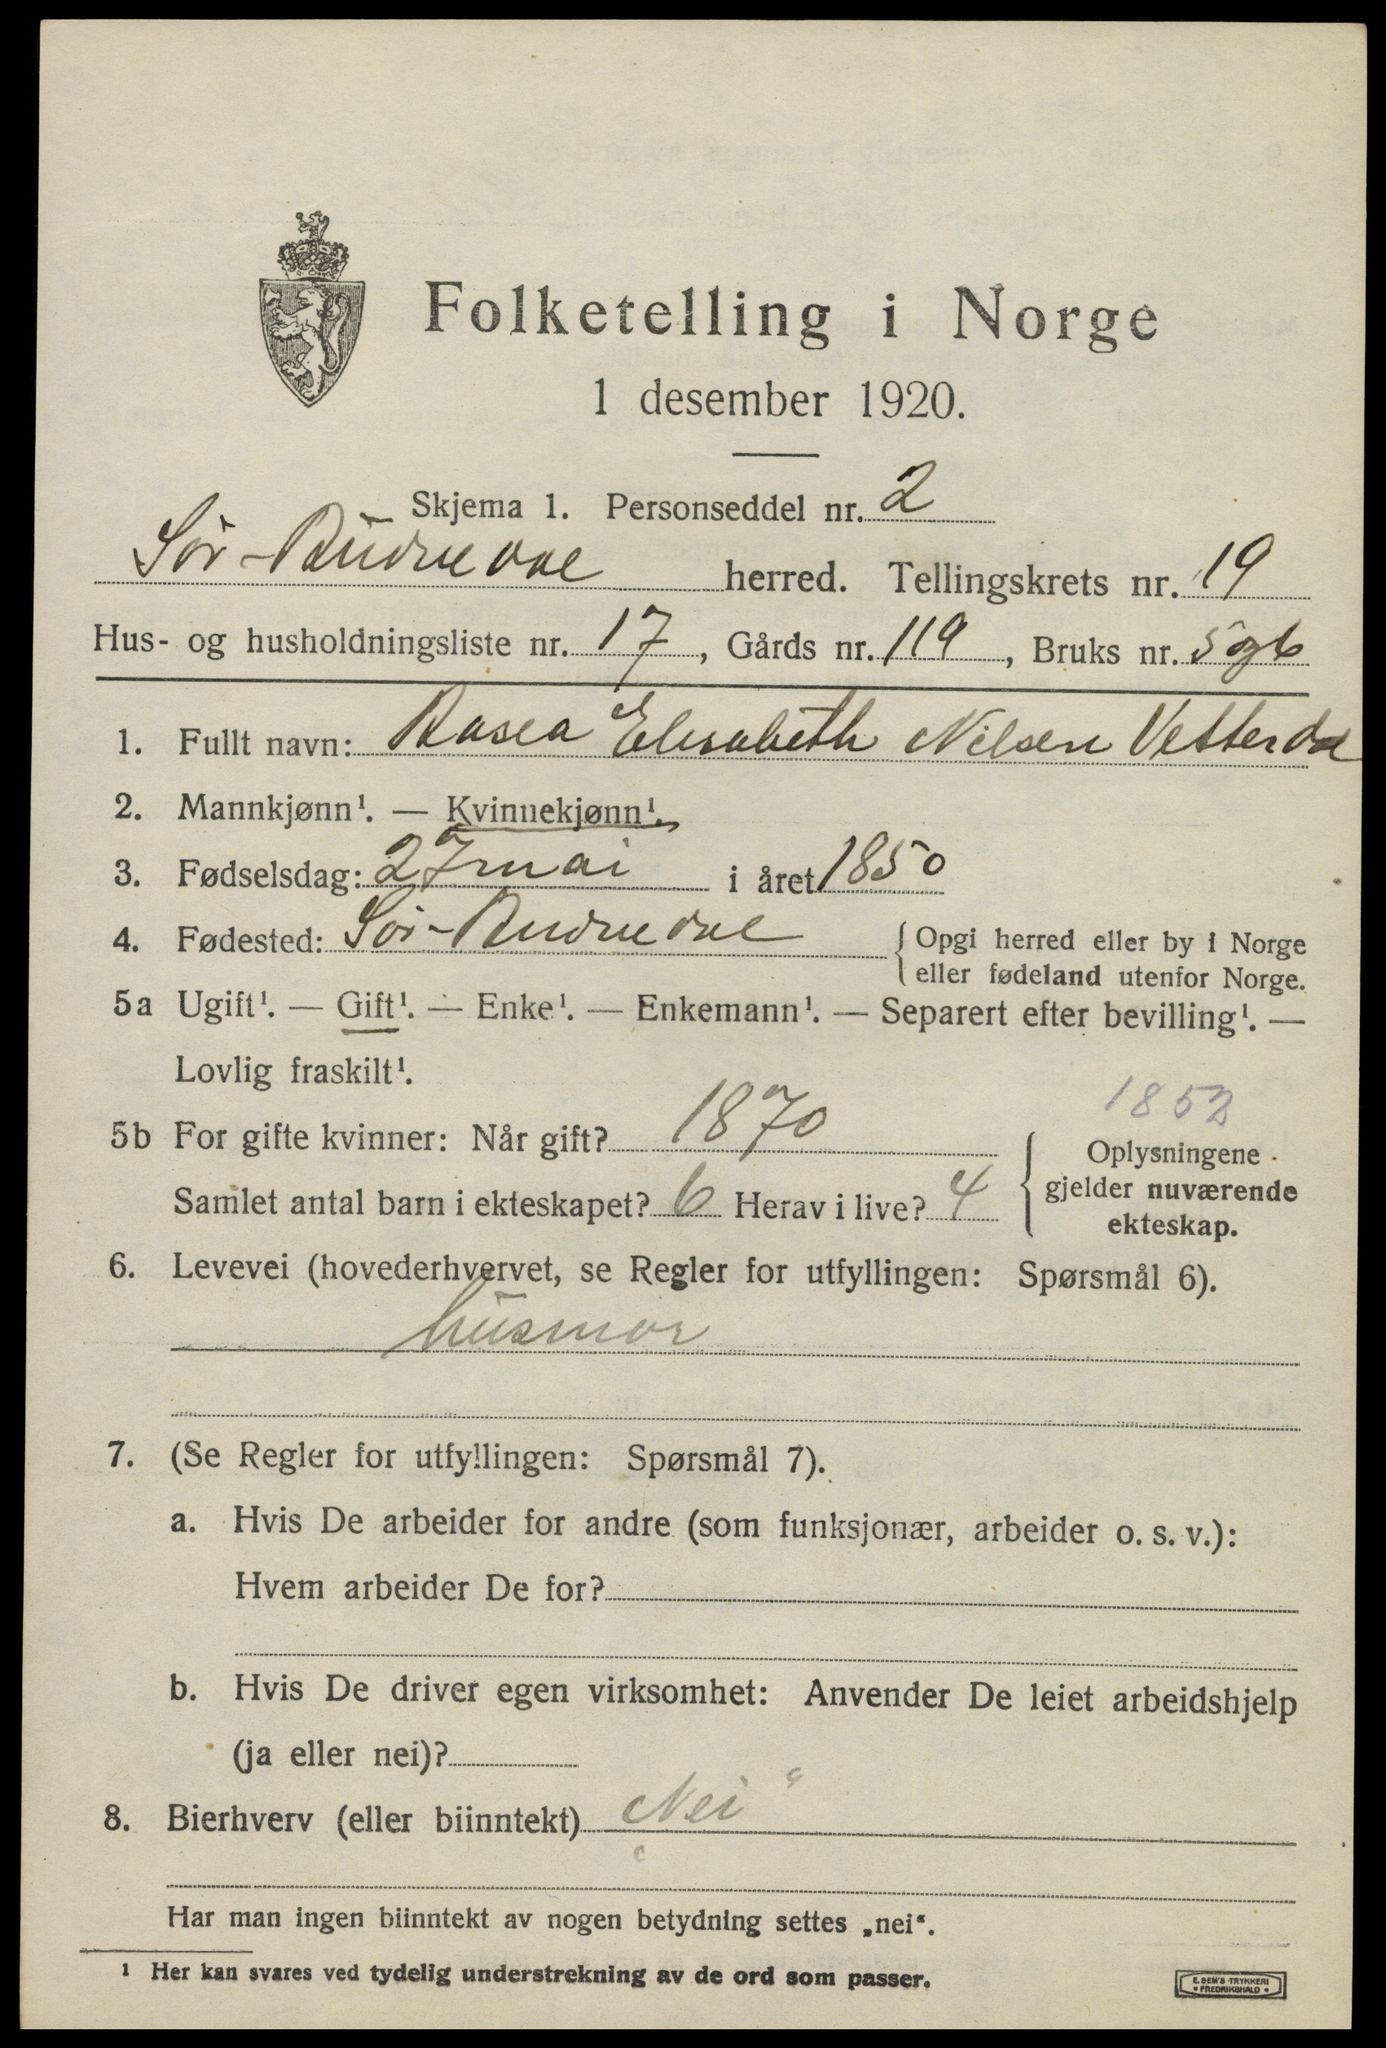 Folketelling i Norge
1 desember 1920.
Skjema 1. Personseddel nr. 2
Sør-Audnedal herred. Tellingskrets nr. 19
Hus- og husholdningsliste nr. 17, Gårds nr. 119, Bruks nr. 5 og 6
1. Fullt navn: Elisabeth Nilsen Vetterdal
2. Mannkjønn¹. — Kvinnekjønn¹.
3. Fødselsdag: 27 mai i året 1850
4. Fødested: Sør-Audnedal { Opgi herred eller by i Norge
eller fødeland utenfor Norge.
5a Ugift¹. — Gift¹. — Enke¹. — Enkemann¹. — Separert efter bevilling¹. —
Lovlig fraskilt¹.
1852
5b For gifte kvinner: Når gift? 1870 Oplysningene
Samlet antal barn i ekteskapet? 6 Herav i live? 4 { gjelder nuværende
ekteskap.
6. Levevei (hovederhvervet, se Regler for utfyllingen: Spørsmål 6).
husmor
7. (Se Regler for utfyllingen: Spørsmål 7).
a. Hvis De arbeider for andre (som funksjonær, arbeider o. s. v.):
Hvem arbeider De for?
b. Hvis De driver egen virksomhet: Anvender De leiet arbeidshjelp
(ja eller nei)?
8. Bierhverv (eller biinntekt) Nei
Har man ingen biinntekt av nogen betydning settes „nei“.
¹ Her kan svares ved tydelig understrekning av de ord som passer.
E. SEM'S TRYKKERI
• FREDRIKSHALD •